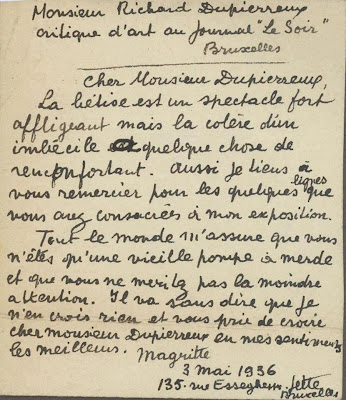 Monsieur Richard Dupierreux
critique d'art au Journal "Le Soir"
Bruxelles
Cher Monsieur Dupierreux,
La bêtise est un spectacle fort
affligeant mais la colère d'un
imbécile a quelque chose de
reconfortant. Aussi je tiens à
vous remercier pour les quelques lignes que
vous avez consacrées à mon exposition.
Tout le monde m'assure que vous
n'êtes qu'une vieille pompe à merde
et que vous ne méritez pas la moindre
attention. Il va sans dire que je
n'en crois rien et vous prie de croire
cher monsieur Dupierreux en mes sentiments
les meilleurs. Magritte
3 mai 1936
135. rue Esseghem. Jette
Bruxelles